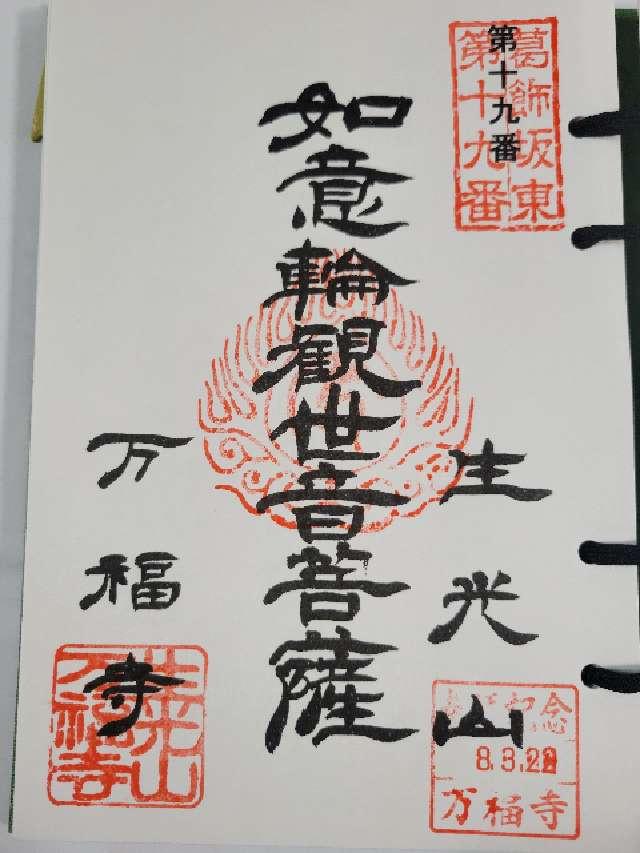 葛飾坂東
第十九番
第十九番
生光山
如意輪観世音菩薩
万福寺
生光山
万福寺
念
8.3.22
万福寺